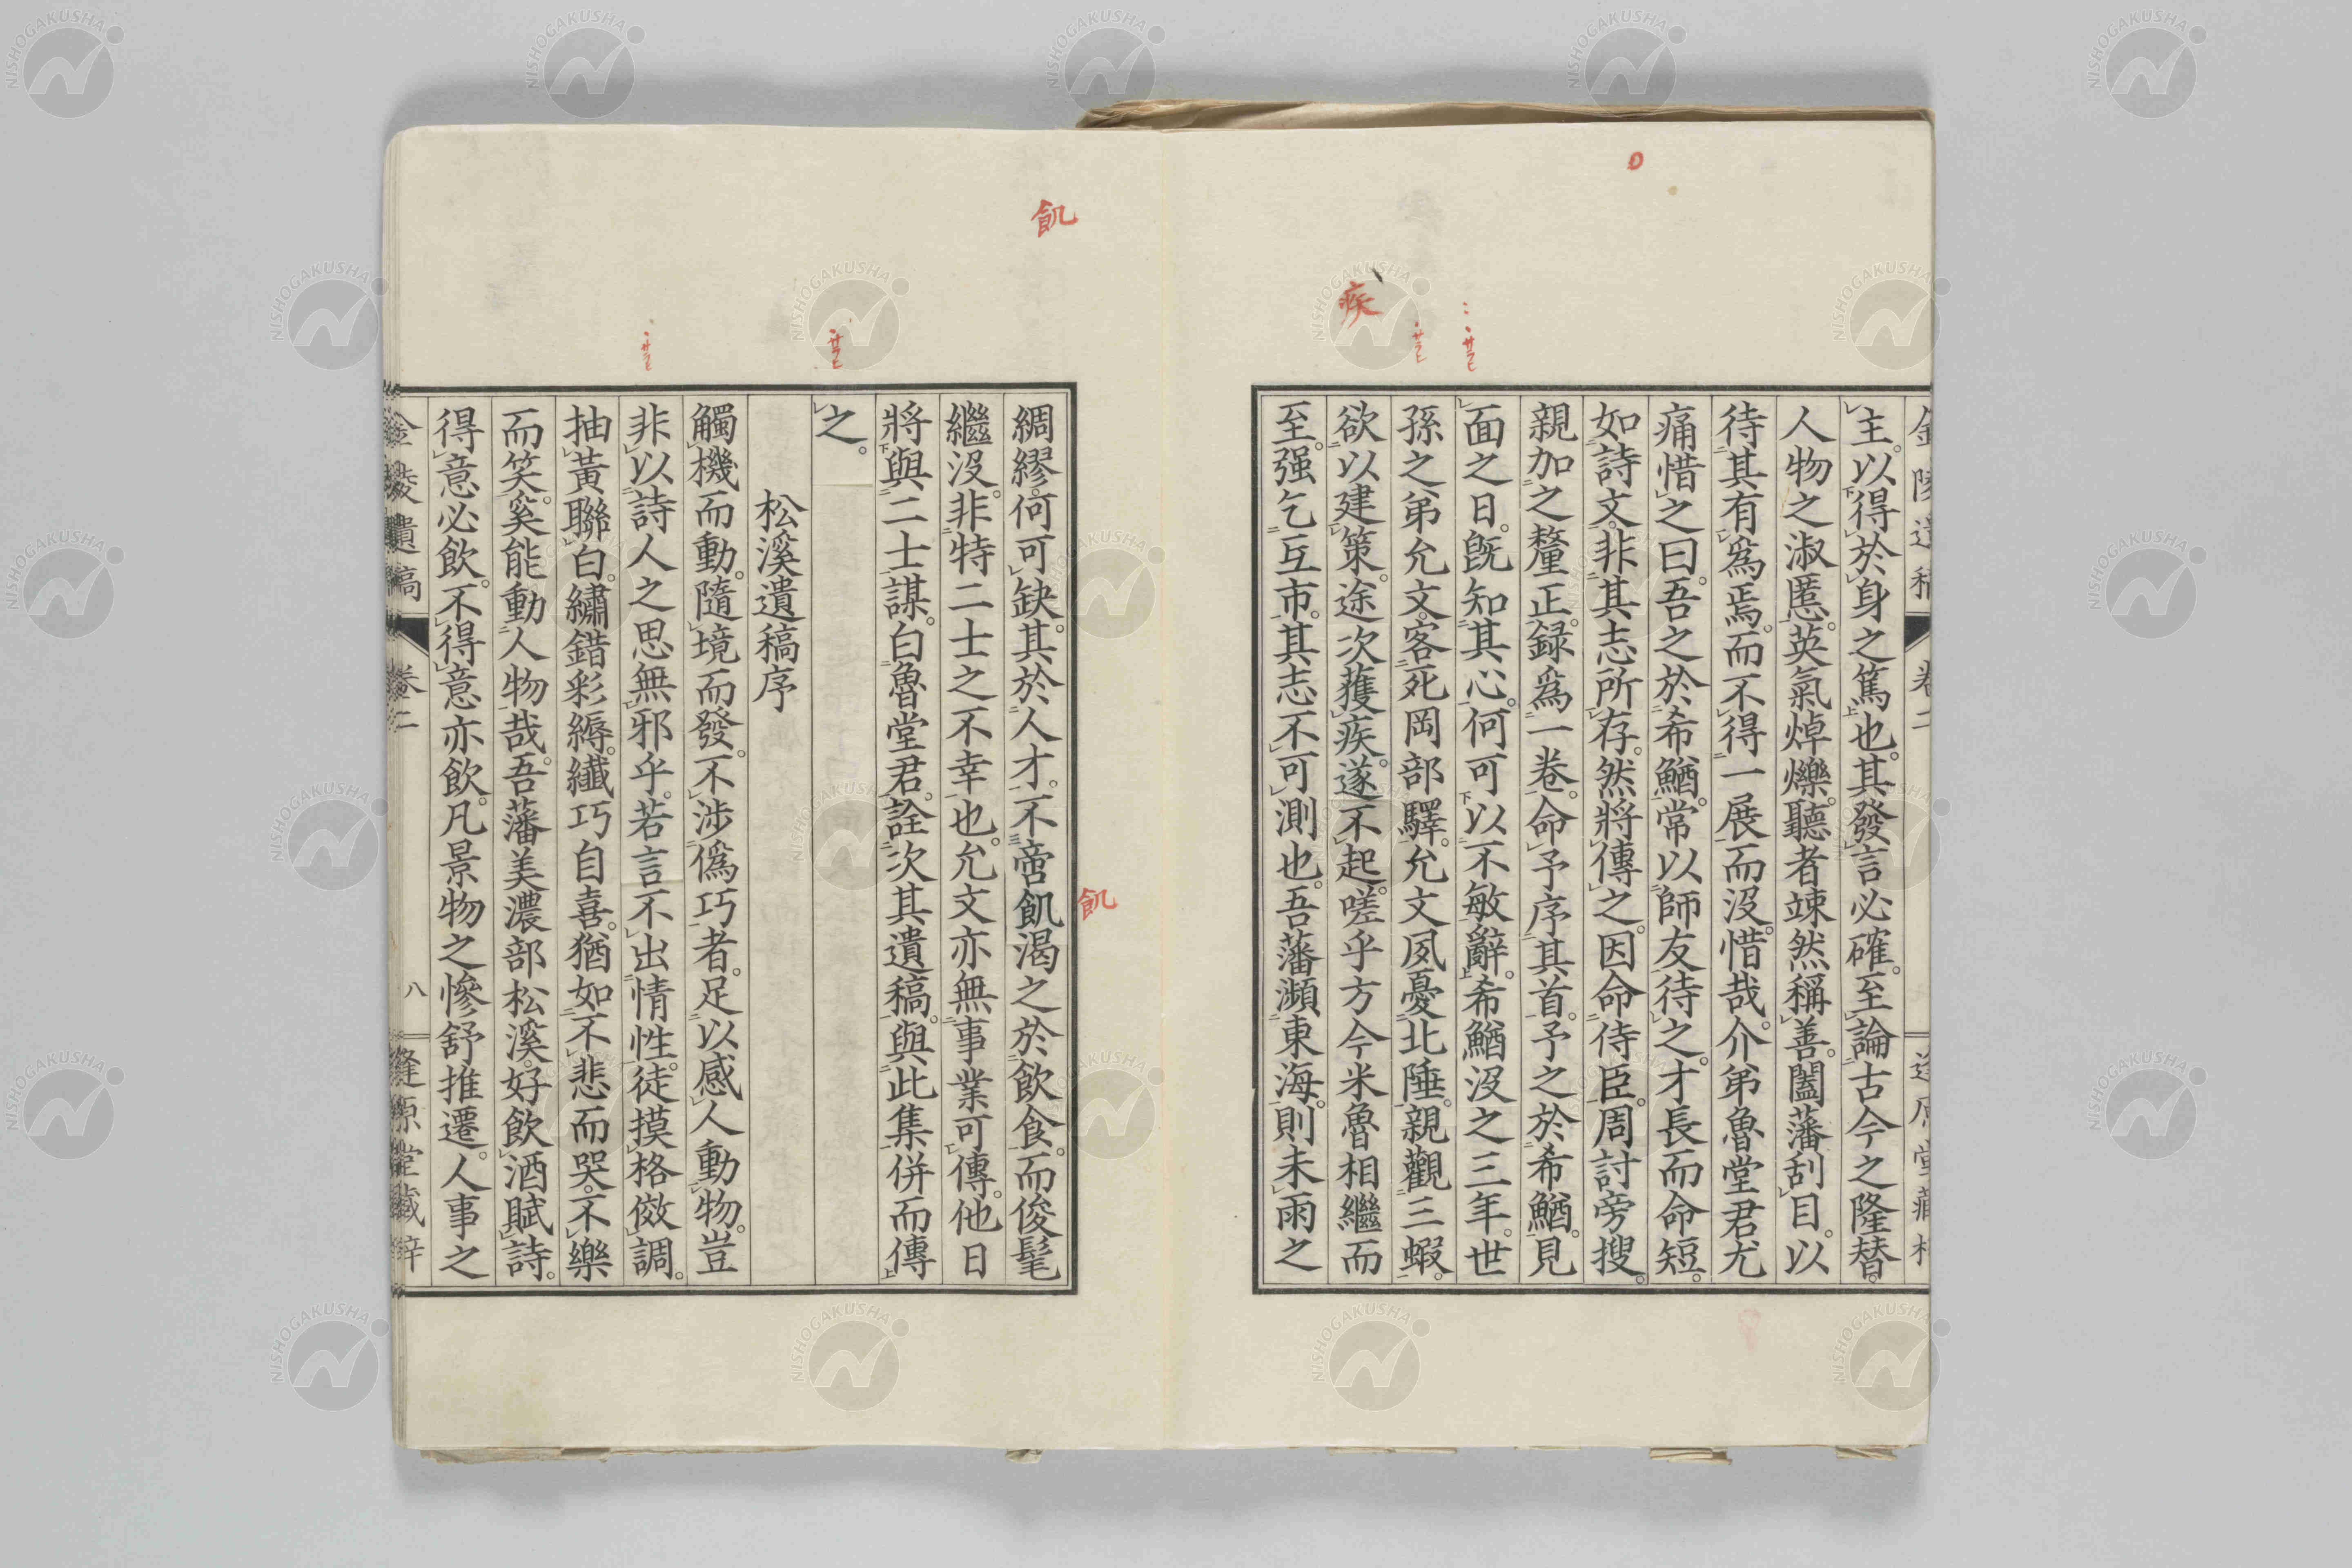 金陵遺稿 卷二 逢原堂藏梓
主。以得於身之篤也。其發言必確。至論古今之隆替。
人物之淑慝。英氣焯爍。聽者竦然稱善。闔藩刮目。以
待其有爲焉。而不得一展而沒。惜哉。介弟魯堂君尤
痛惜之曰。吾之於希鰌。常以師友待之。才長而命短。
如詩文。非其志所存。然將傳之。因命侍臣。周討旁搜。
親加之釐正。録爲一卷。命予序其首。予之於希鰌。見
面之日。旣知其心。何可以不敏辭。希鰌沒之三年。世
孫之弟允文。客死岡部驛。允文夙憂北陲。親觀三蝦。
欲以建策。途次獲疾。遂不起。嗟乎方今米魯相繼而
至。强乞互市。其志不可測也。吾藩瀕東海。則未雨之
綢繆。何可缺。其於人才。不啻飢渴之於飲食。而俊髦
繼沒。非特二士之不幸也。允文亦無事業可傳。他日
將與二士謀。白魯堂君。詮次其遺稿。與此集併而傳
之。
松溪遺稿序
觸機而動。隨境而發。不涉僞巧者。足以感人動物。豈
非以詩人之思無邪乎。若言不出情性。徒摸格傚調。
抽黃聯白。繡錯彩縟。纎巧自喜。猶如不悲而哭。不樂
而笑。奚能動人物哉。吾藩美濃部松溪。好飲酒賦詩。
得意必飲。不得意亦飲。凡景物之慘舒推遷。人事之
金陵遺稿 卷二 八 逢原堂藏梓
飢
疾
飢
NISHOGAKUSHA